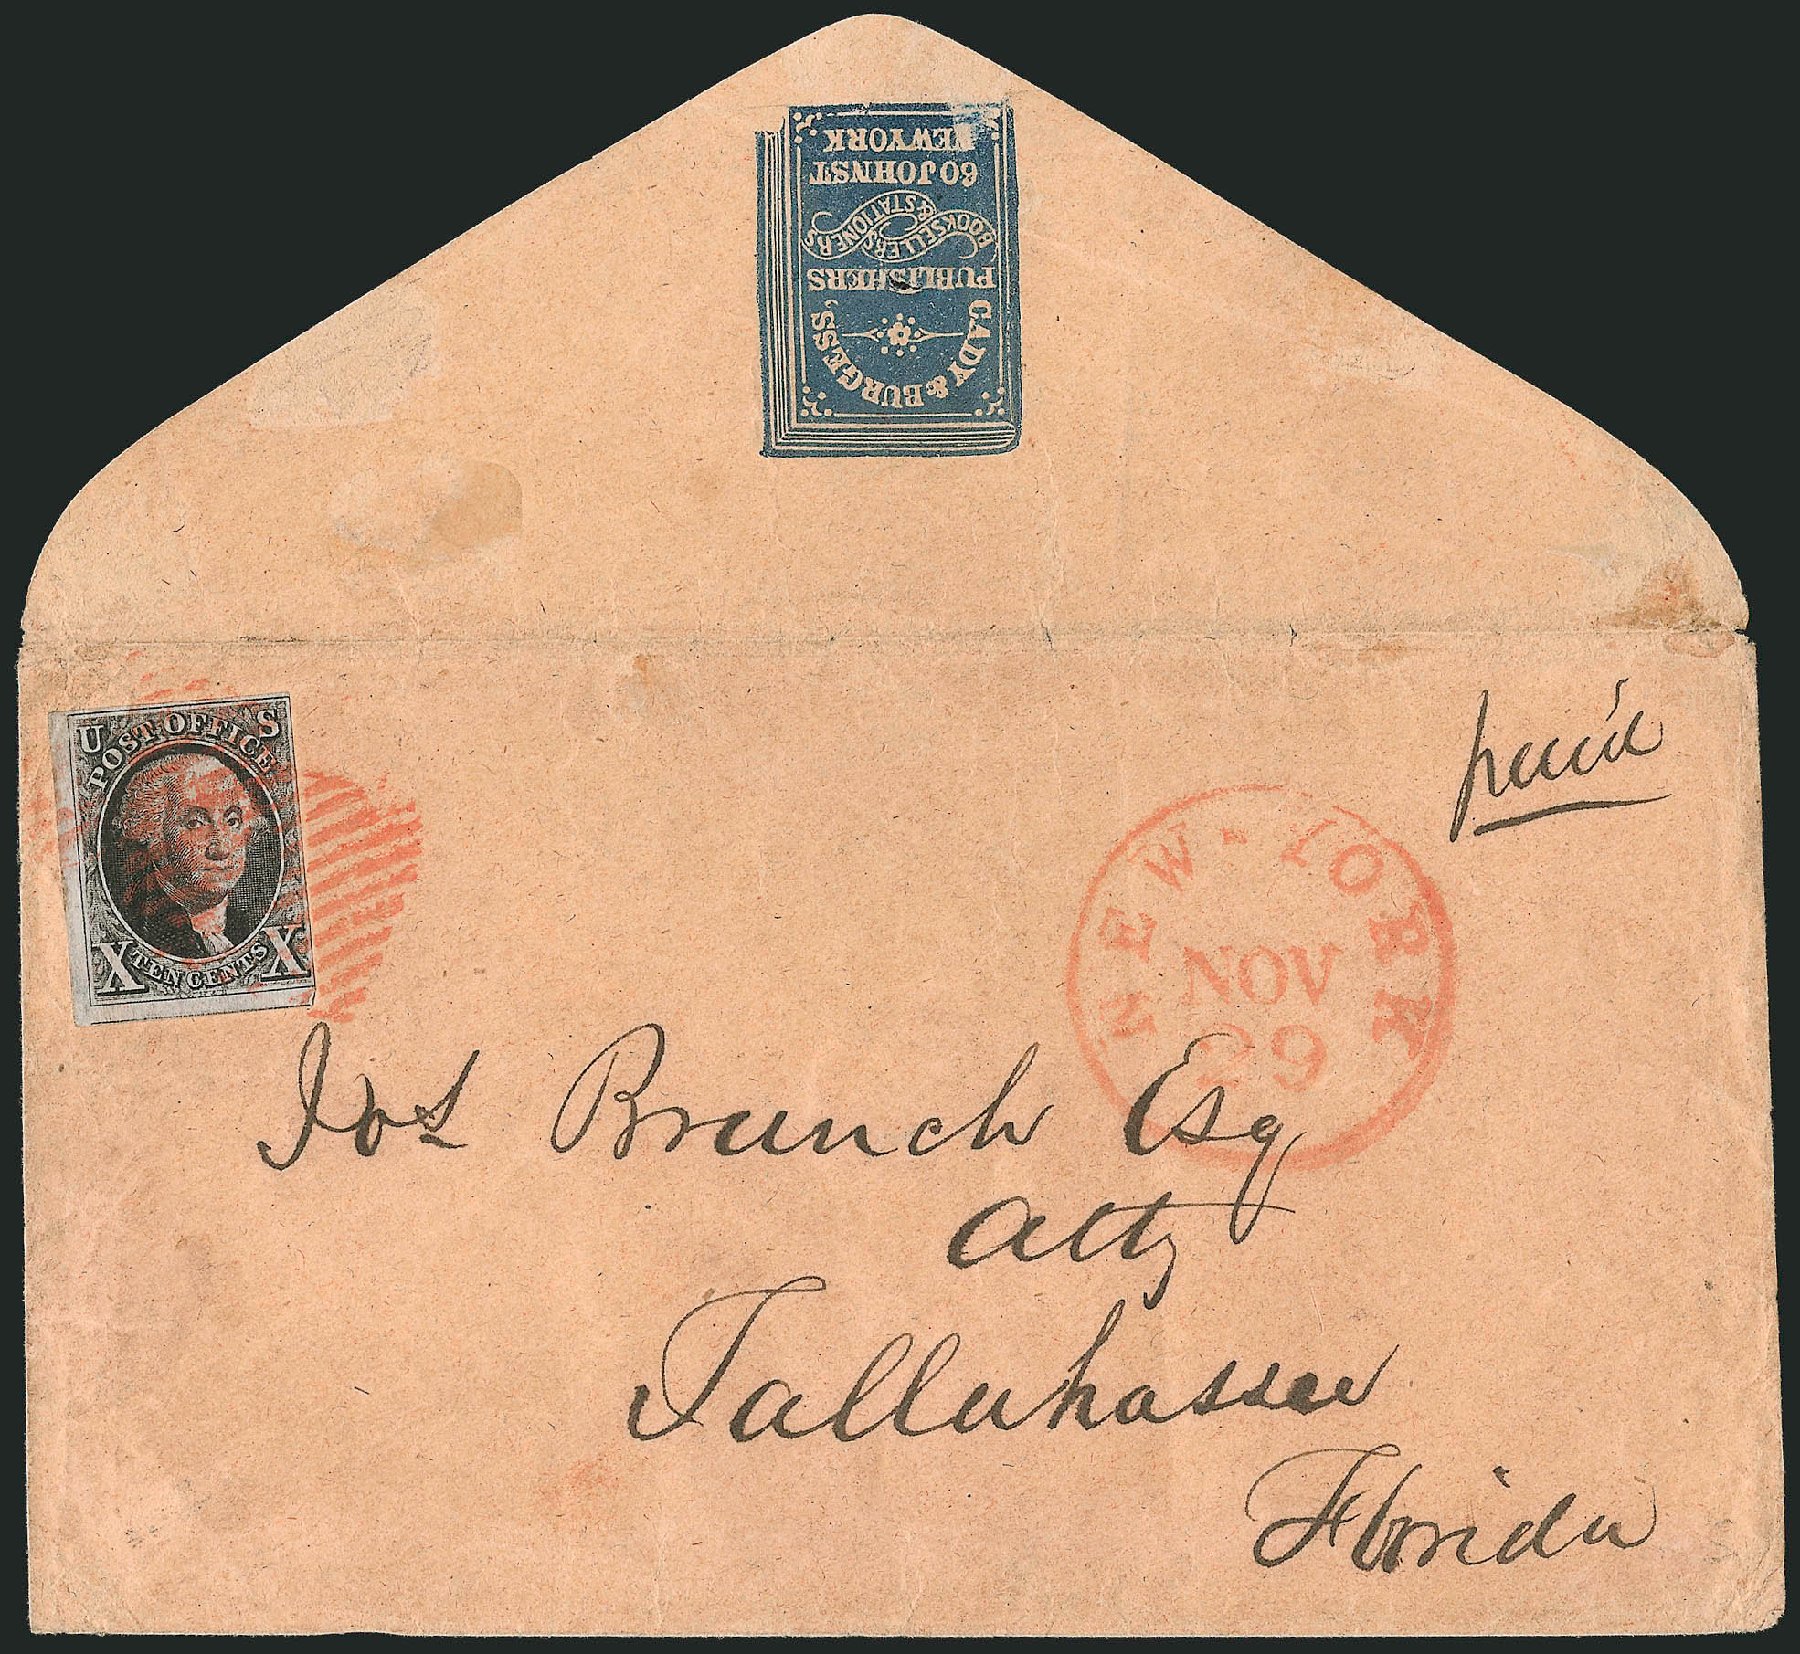 CADY & BURGESS,
PUBLISHERS
BOOKSELLERS
& STATIONERS
60 JOHN ST
NEW YORK
U S
POST OFFICE
X TEN CENTS X
paid
NEW-YORK
NOV
29
Jos Branch Esq
Atty
Tallahassee
Florida